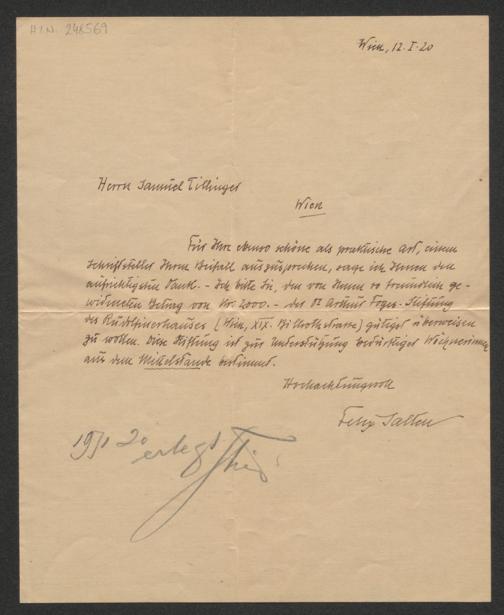 H.I.N. 248569
Wien, 12.I.20
Herrn Samuel Tillinger
Wien
Für Ihre ebenso schöne als praktische Art, einem
Schriftsteller Ihren Beifall auszusprechen, sage ich Ihnen den
aufrichtigsten Dank. – Ich bitte Sie, den von Ihnen so freundlich ge-
widmeten Betrag von Kr. 2000. – der Dr Arthur Foges-Stiftung
des Rudolfinerhauses (Wien, XIX. Billrothstrasse) gütigst überweisen
zu wollen. Diese Stiftung ist zur Unterstützung bedürftiger Wöchnerinnen
aus dem Mittelstande bestimmt.
Hochachtungsvoll
Felix Salten
19/1 20
erlegt